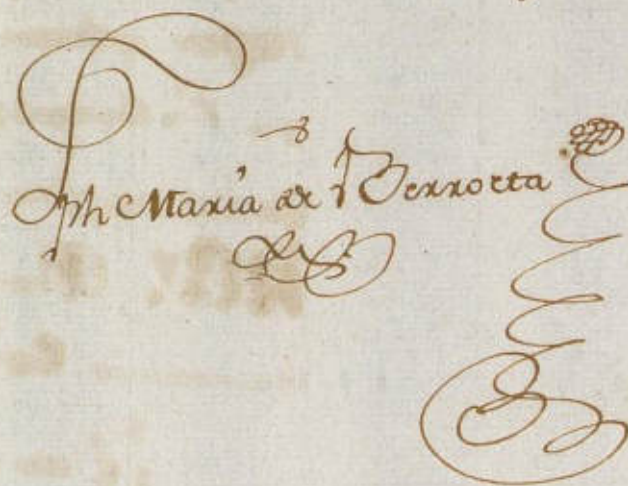 Jph Maria de Berroeta